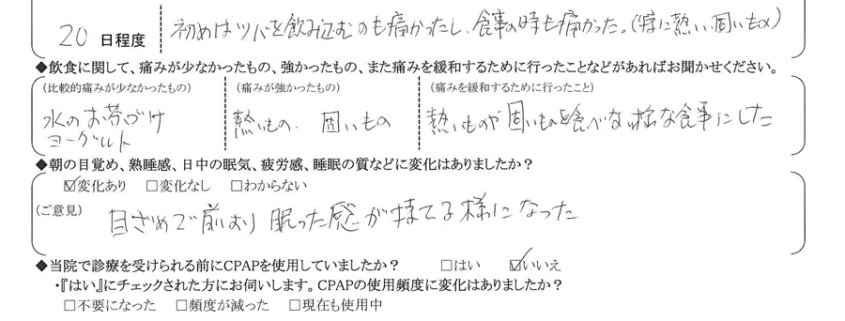 20 日程度 初めはツバを飲み込むのも痛かったし、食事の時も痛かった。(特に熱い、固いもの)
◆飲食に関して、痛みが少なかったもの、強かったもの、また痛みを緩和するために行ったことなどがあればお聞かせください。
(比較的痛みが少なかったもの) (痛みが強かったもの) (痛みを緩和するために行ったこと)
水のお茶づけ 熱いもの、固いもの 熱いものや固いものを食べない様な食事にした
ヨーグルト
◆朝の目覚め、熟睡感、日中の眠気、疲労感、睡眠の質などに変化はありましたか？
☑変化あり □変化なし □わからない
(ご意見) 目ざめで前より眠った感が持てる様になった
◆当院で診療を受けられる前にCPAPを使用していましたか？ □はい ☑いいえ
・『はい』にチェックされた方にお伺いします。CPAPの使用頻度に変化はありましたか？
□不要になった □頻度が減った □現在も使用中